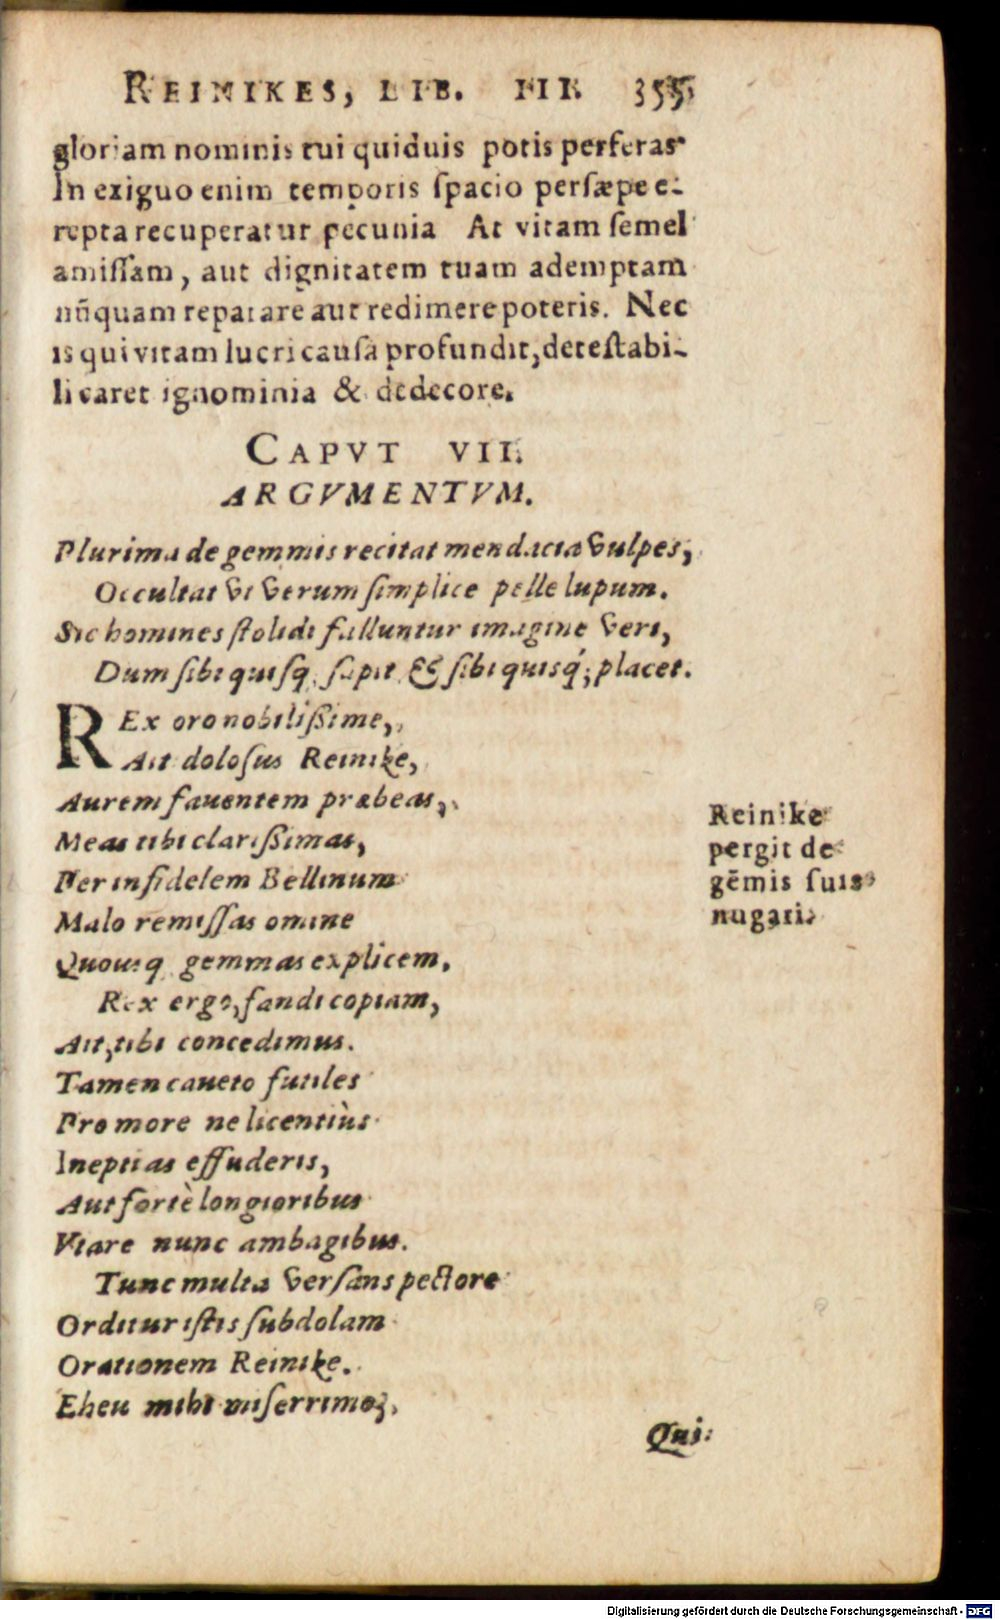 REINIKES, LIB. III. 355
gloriam nominis tui quiduis potis perferas
In exiguo enim temporis spacio persæpe e-
repta recuperatur pecunia At vitam semel
amissam, aut dignitatem tuam ademptam
nũquam reparare aut redimere poteris. Nec
is qui vitam lucri causa profundit, detestabi-
li caret ignominia & dedecore.
CAPVT VII.
ARGVMENTVM.
Plurima de gemmis recitat mendacia vulpes,
Occultat vt verum simplice pelle lupum.
Sic homines stolidi falluntur imagine veri,
Dum sibi quisq; sapit & sibi quisq́; placet.
REx oro nobilißime,
Ait dolosus Reinike,
Aurem fauentem præbeas,
Meas tibi clarißimas,
Per infidelem Bellinum
Malo remissas omine
Quousq; gemmas explicem.
Rex ergo, fandi copiam,
Ait, tibi concedimus.
Tamen caueto futiles
Pro more ne licentiùs
Ineptias effuderis,
Aut fortè longioribus
Vtare nunc ambagibus.
Tunc multa versans pectore
Orditur istis subdolam
Orationem Reinike.
Eheu mihi miserrimo,
Reinike
pergit de
gẽmis suis
nugari.
Qui
Digitalisierung gefördert durch die Deutsche Forschungsgemeinschaft - DFG